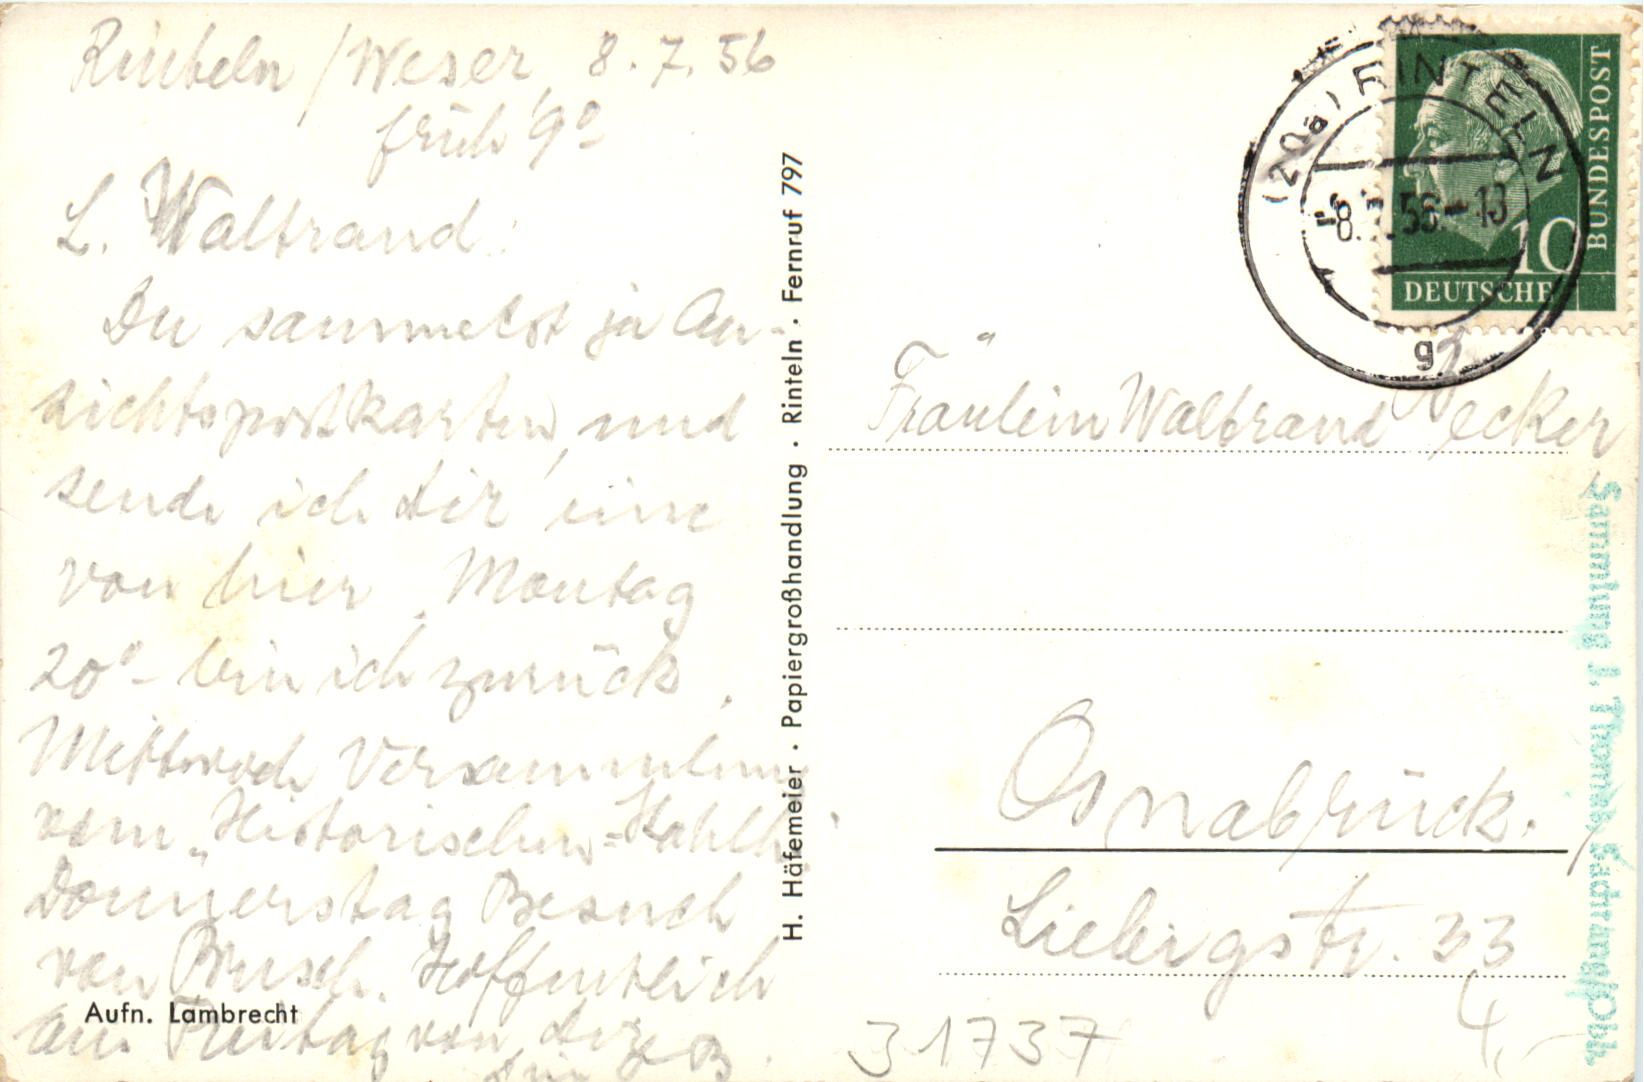 Rinteln / Weser, 8.7.56
früh 9°
L. Waltraud!
Du sammelst ja An-
sichtspostkarten, und
sende ich dir eine
von hier. Montag
20° - bin ich zurück.
Mittwoch Versammlung
vom „Historischen-
Donnerstag Besuch
von Busch. Hoffentlich
am Freitag von dir
Aufn. Lambrecht
H. Häfemeier · Papiergroßhandlung · Rinteln · Fernruf 797
(20a) RINTELN
-8.7.56.-13
g
DEUTSCHE
BUNDESPOST
10
Fräulein Waltraud
Osnabrück.
Liebigstr. 33
31737
4,-
Sammlung J. Thomas,